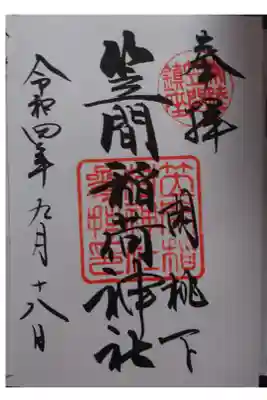 奉拝
胡桃下
笠間稲荷神社
令和四年九月十八日